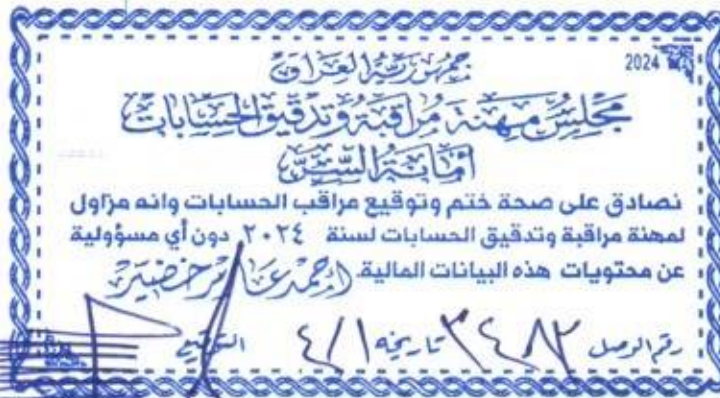 2024
جمهورية العراق
مجلس مهنة مراقبة وتدقيق الحسابات
أمانة السر
نصادق على صحة ختم وتوقيع مراقب الحسابات وانه مزاول
لمهنة مراقبة وتدقيق الحسابات لسنة ٢٠٢٤ دون أي مسؤولية
عن محتويات هذه البيانات المالية. احمد عامر خضير
رقم الوصل ٣٤٨٣ تاريخه ٤/١ التوقيع